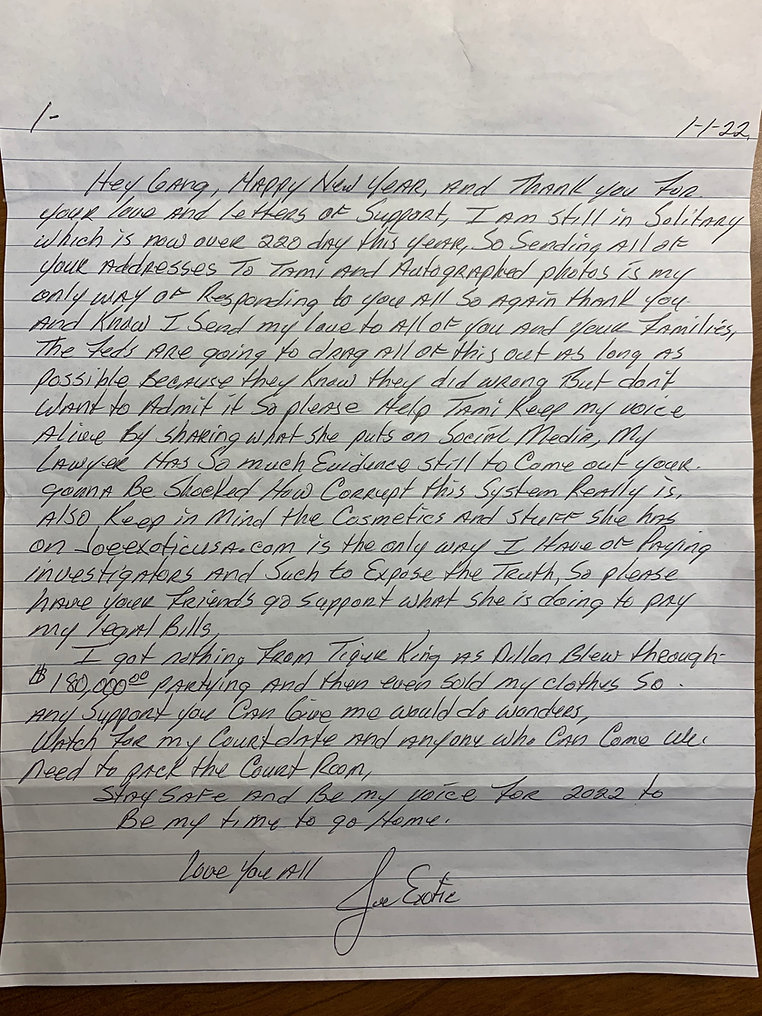 1-
1-1-22.
Hey Gang, Happy New Year, And Thank you For
your love and letters of Support, I Am still in Solitary
which is now over 220 day this year, So Sending All of
your Addresses To Tami And Autographed photos is my
only way of Responding to you All So Again thank you
And Know I Send my love to All of you And your Families,
The Feds Are going to drag All of this out As long As
possible Because they Know they did wrong But don't
Want to Admit it So please Help Tami Keep my voice
Alive By sharing what she puts on Social Media, My
Lawyer Has So much Evidence still to Come out your
gonna Be Shocked How Corrupt this System Really is,
Also, Keep in Mind the Cosmetics And stuff she has
on Joeexoticusa.com is the only way I Have of Paying
investigators And Such to Expose the Truth, So please
have your friends go support what she is doing to pay
my legal Bills,
I got nothing From Tigur King As Dillon Blew through
$180,000.00 partying And then even sold my clothes So
Any Support you Can Give me would do wonders,
Watch for my Court date And Anyone who Can Come We
Need to pack the Court Room,
Stay Safe And Be my voice For 2022 to
Be my time to go Home.
Love You All
Joe Exotic